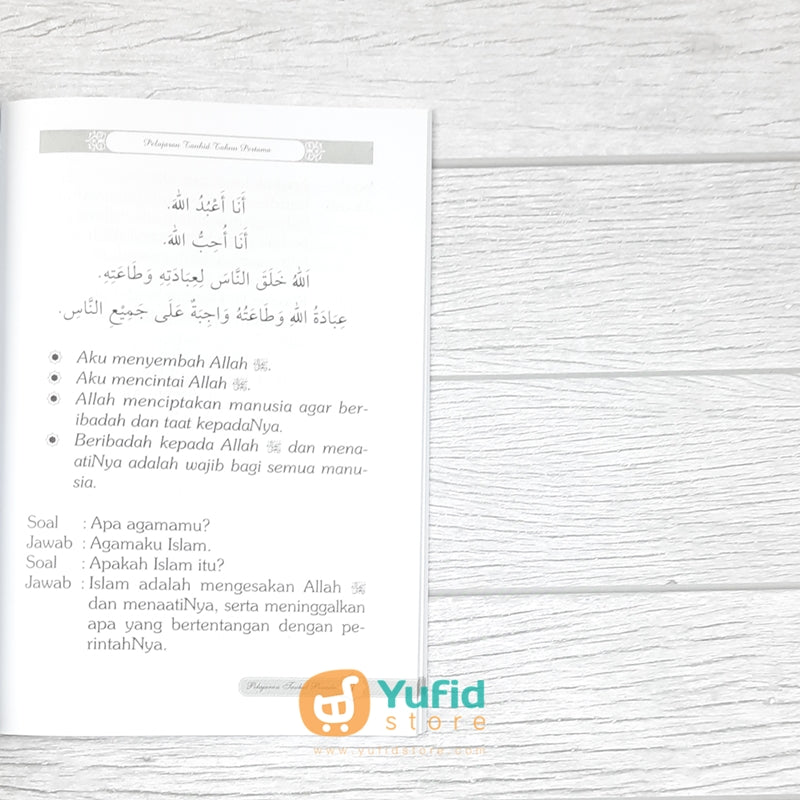 Pelajaran Tauhid Tahun Pertama
أَنَا أَعْبُدُ اللهَ.
أَنَا أُحِبُّ اللهَ.
اَللهُ خَلَقَ النَّاسَ لِعِبَادَتِهِ وَطَاعَتِهِ.
عِبَادَةُ اللهِ وَطَاعَتُهُ وَاجِبَةٌ عَلَى جَمِيْعِ النَّاسِ.
Aku menyembah Allah ﷻ.
Aku mencintai Allah ﷻ.
Allah menciptakan manusia agar ber-
ibadah dan taat kepadaNya.
Beribadah kepada Allah ﷻ dan mena-
atiNya adalah wajib bagi semua manu-
sia.
Soal : Apa agamamu?
Jawab : Agamaku Islam.
Soal : Apakah Islam itu?
Jawab : Islam adalah mengesakan Allah ﷻ
dan menaatiNya, serta meninggalkan
apa yang bertentangan dengan pe-
rintahNya.
Pelajaran Tauhid
Yufid
store
www.yufidstore.com